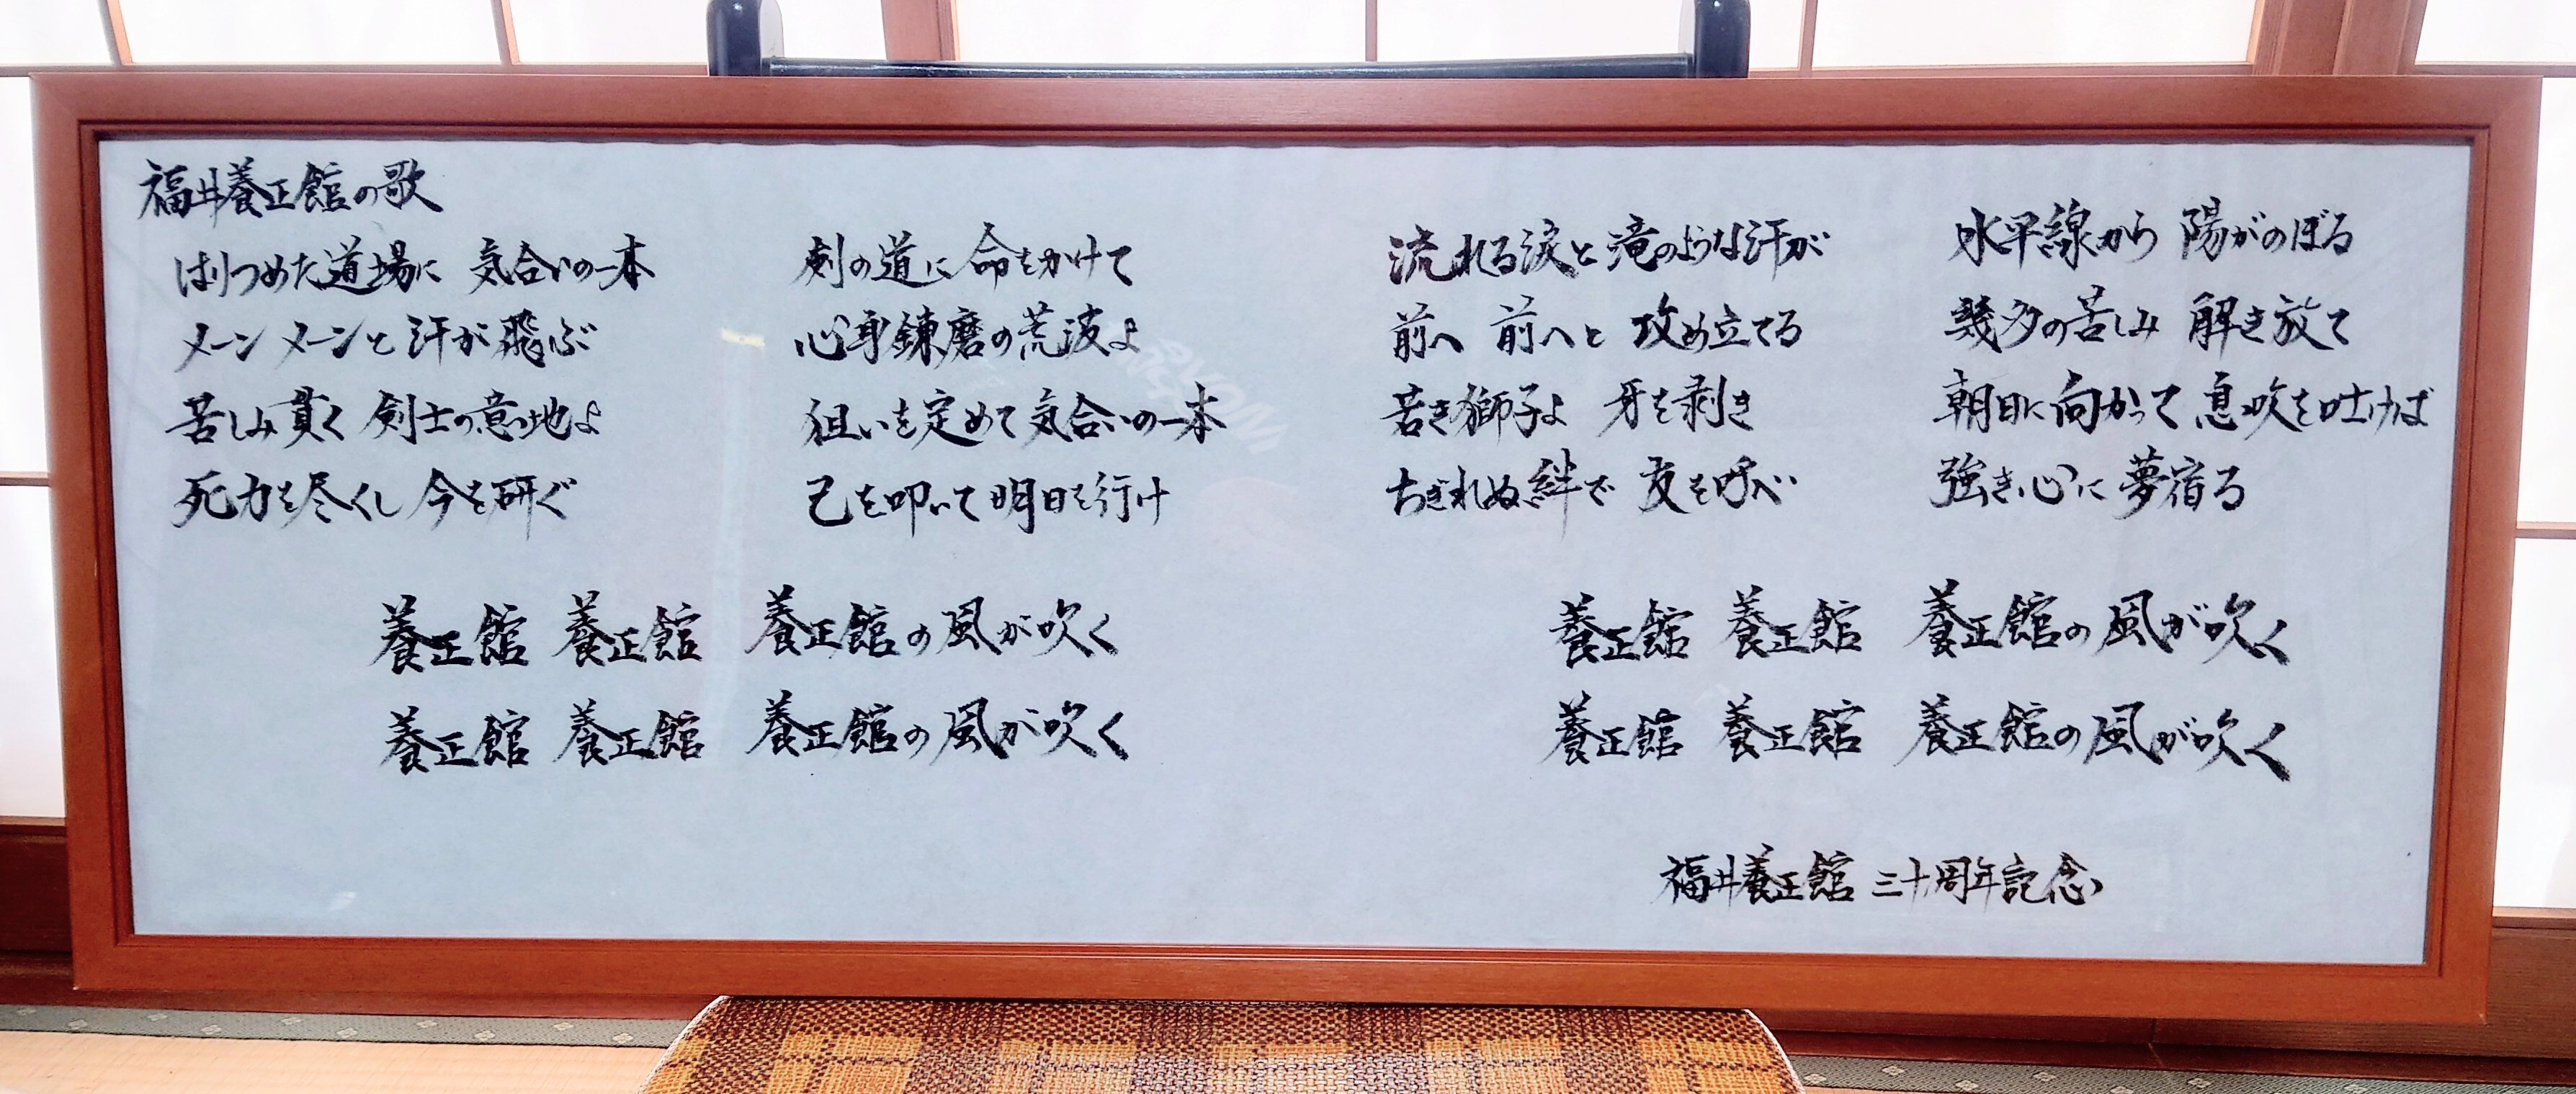 福井養正館の歌
はりつめた道場に 気合いの一本
メーン メーンと 汗が飛ぶ
苦しみ貫く 剣士の意地よ
死力を尽くし 今を研ぐ
剣の道に 命をかけて
心身錬磨の荒波よ
狙いを定めて 気合いの一本
己を叩いて 明日を行け
養正館 養正館 養正館の風が吹く
養正館 養正館 養正館の風が吹く
流れる涙と 滝のような汗が
前へ 前へと 攻め立てる
若き獅子よ 牙を剥き
ちぎれぬ絆で 友を呼べ
水平線から 陽がのぼる
幾多の苦しみ 解き放て
朝日に向かって 息吹を吐けば
強き心に 夢宿る
養正館 養正館 養正館の風が吹く
養正館 養正館 養正館の風が吹く
福井養正館 三十周年記念